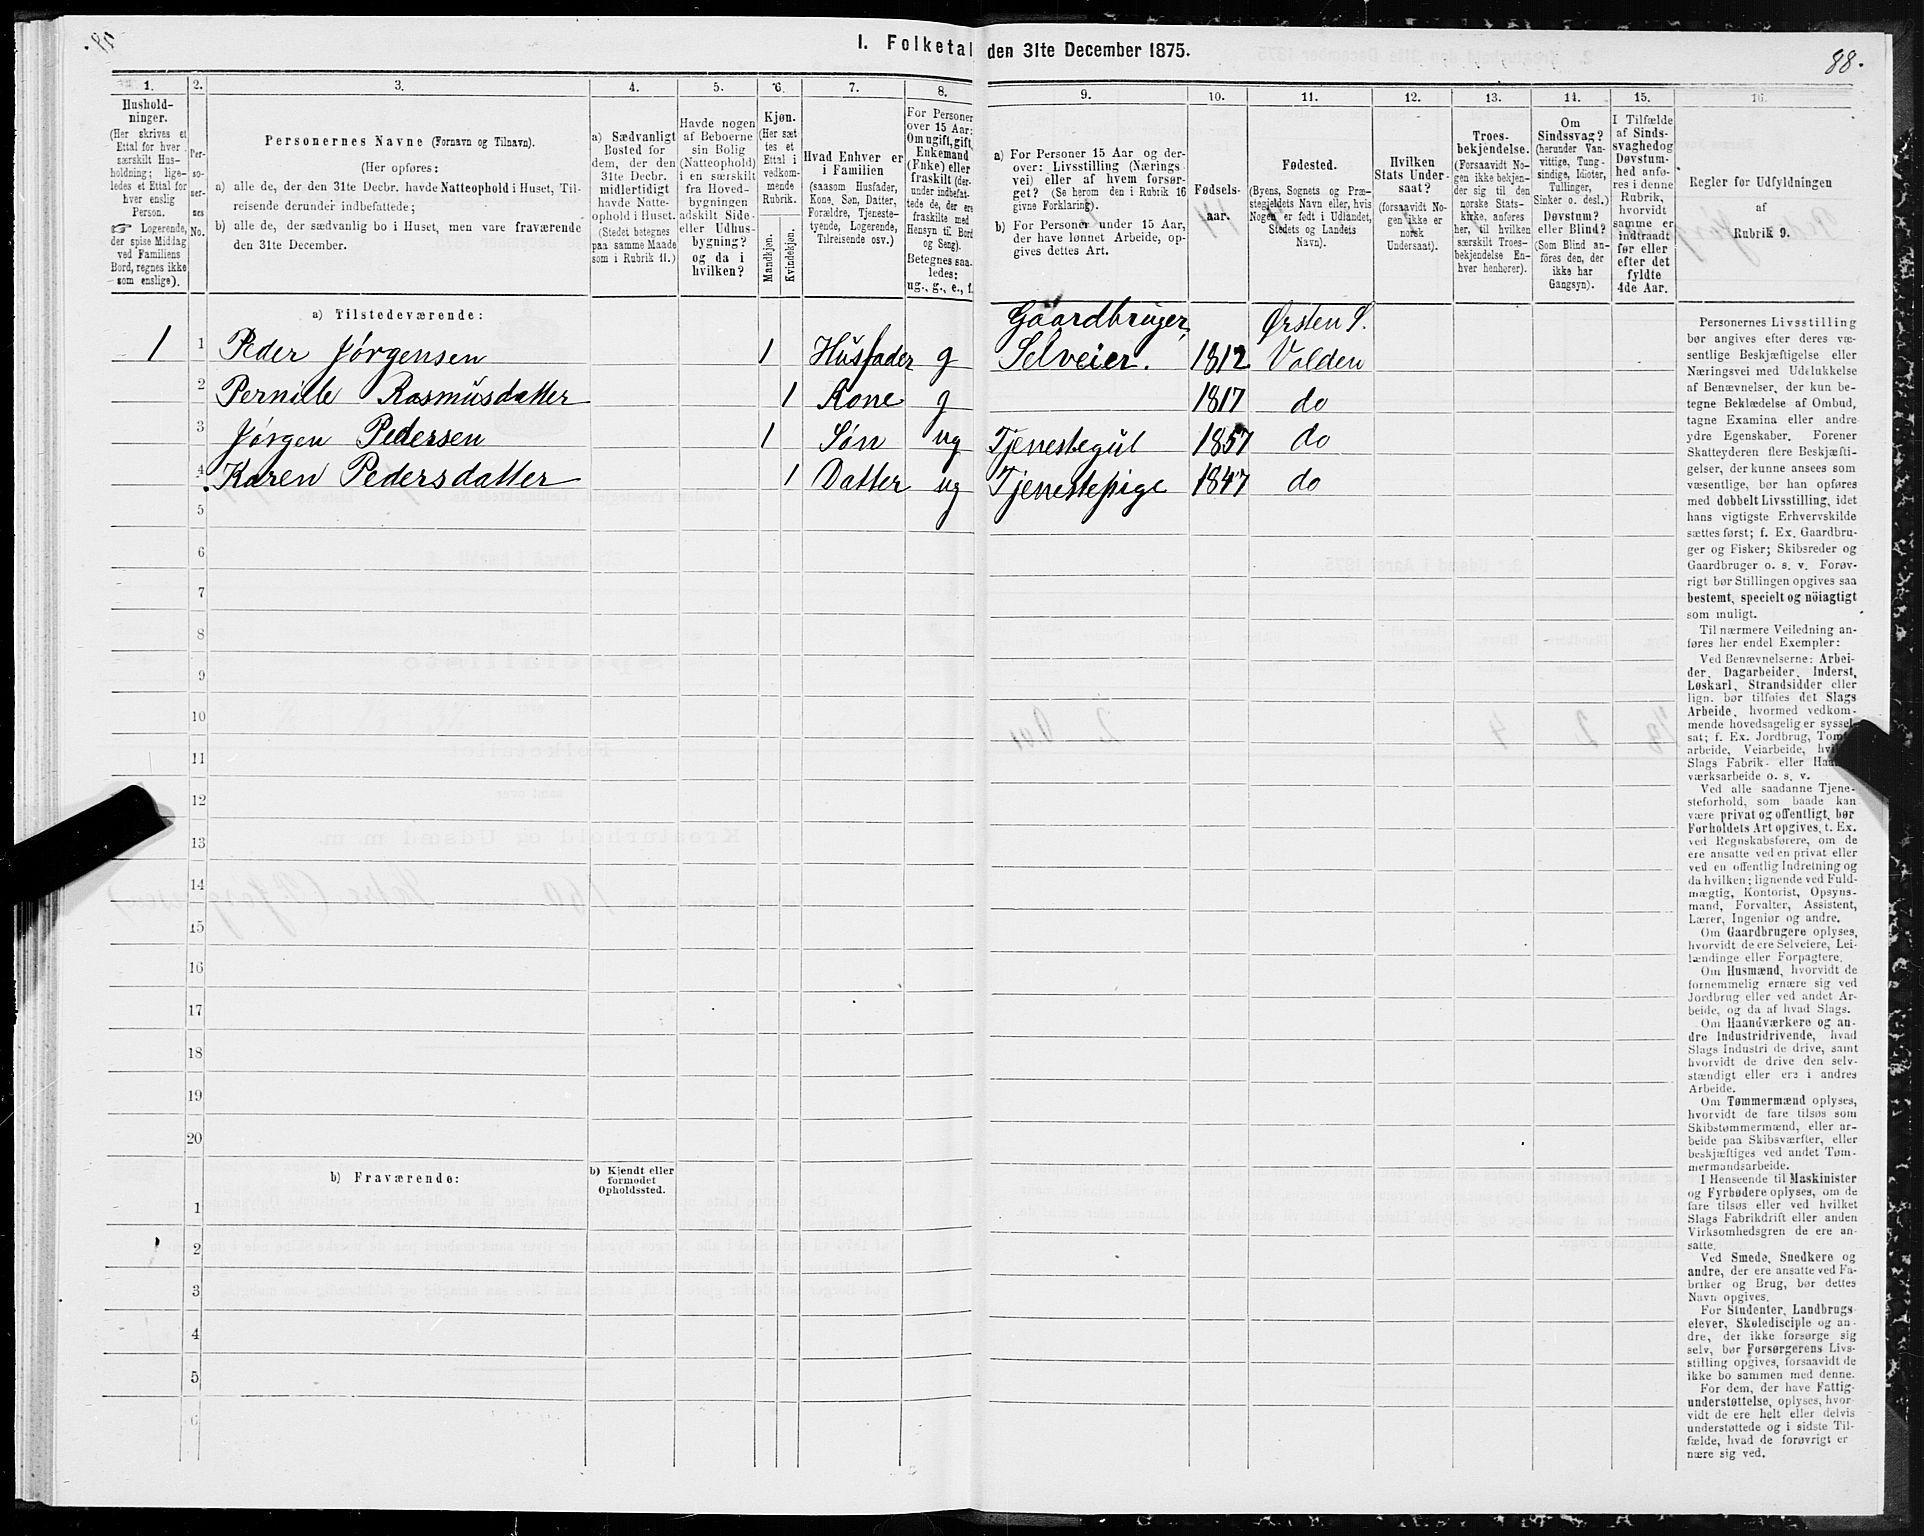 I. Folketal den 31te December 1875.
88.
1.
2.
3.
4.
5.
6.
7.
8.
9.
10.
11.
12.
13.
14.
15.
16.
Hushold-
ninger.
(Her skrives et
Ettal for hver
særskilt Hus-
holdning; lige-
ledes et Ettal for
hver enslig
Person.
☞ Logerende,
der spise Middag
ved Familiens
Bord, regnes ikke
som enslige).
Per-
so-
ner-
nes
No.
Personernes Navne (Fornavn og Tilnavn).
(Her opføres:
a) alle de, der den 31te Decbr. havde Natteophold i Huset, Til-
reisende derunder indbefattede;
b) alle de, der sædvanlig bo i Huset, men vare fraværende
den 31te December.
a) Sædvanligt
Bosted for
dem, der den
31te Decbr.
midlertidigt
havde Natte-
ophold i Huset.
(Stedet betegnes
paa samme Maade
som i Rubrik 11.)
Havde nogen
af Beboerne
sin Bolig
(Natteophold)
i en særskilt
fra Hoved-
bygningen
adskilt Side-
eller Udhus-
bygning?
og da i
hvilken?
Kjøn.
(Her sæt
tes et
Ettal i
vedkom-
mende
Rubrik.
Mandkjøn.
Kvindekjøn.
Hvad Enhver er
i Familien
(saasom Husfader,
Kone, Søn, Datter,
Forældre, Tjeneste-
tyende, Logerende,
Tilreisende osv.)
For Personer
over 15 Aar:
Om ugift, gift,
Enkemand
(Enke) eller
fraskilt (der-
under indbefat-
tede de, der ere
fraskilte med
Hensyn til Bord
og Seng).
Betegnes saa-
ledes:
ug., g., e., f.
a) For Personer 15 Aar og der-
over: Livsstilling (Nærings-
vei) eller af hvem forsør-
get? (Se herom den i Rubrik 16
givne Forklaring).
b) For Personer under 15 Aar,
der have lønnet Arbeide, op-
gives dettes Art.
Fødsels-
aar.
Fødested.
(Byens, Sognets og Præ-
stegjeldets Navn eller, hvis
Nogen er født i Udlandet,
Stedets og Landets
Navn).
Hvilken
Stats Under-
saat?
(forsaavidt No-
gen ikke er
norsk
Undersaat).
Troes-
bekjendelse.
(Forsaavidt No-
gen ikke bekjen-
der sig til den
norske Stats-
kirke, anføres
her, til hvilken
særskilt Troes-
bekjendelse En-
hver henhører).
Om
Sindssvag?
(herunder Van-
vittige, Tung-
sindige, Idioter,
Tullinger,
Sinker o. desl.)
Døvstum?
eller Blind?
(Som Blind an-
føres den, der
ikke har
Gangsyn).
I Tilfælde
af Sinds-
svaghed og
Døvstum-
hed anfø-
res i denne
Rubrik,
hvorvidt
samme er
indtraadt
før eller
efter det
fyldte
4de Aar.
Regler for Udfyldningen
af
Rubrik 9.
a) Tilstedeværende:
1 1 Peder Jørgensen 1 Husfader g Gaardbruger, Selveier. 1812 Ørsten S. Volden
2 Pernille Rasmusdatter 1 Kone g 1817 do
3 Jørgen Pedersen 1 Søn ug Tjenestegut 1857 do
4 Karen Pedersdatter 1 Datter ug Tjenestepige 1847 do
5
6
7
8
9
10
11
12
13
14
15
16
17
18
19
20
b) Fraværende:
b) Kjendt eller
formodet
Opholdssted.
1
2
3
4
5
6
Personernes Livsstilling
bør angives efter deres væ-
sentlige Beskjæftigelse eller
Næringsvei med Udelukkelse
af Benævnelser, der kun be-
tegne Beklædelse af Ombud,
tagne Examina eller andre
ydre Egenskaber. Forener
Skatteyderen flere Beskjæfti-
gelser, der kunne ansees som
væsentlige, bør han opføres
med dobbelt Livsstilling, idet
hans vigtigste Erhvervskilde
sættes først; f. Ex. Gaardbru-
ger og Fisker; Skibsreder og
Gaardbruger o. s. v. Forøv-
rigt bør Stillingen opgives saa
bestemt, specielt og nöiagtigt
som muligt.
Til nærmere Veiledning an-
føres her endel Exempler:
Ved Benævnelserne: Arbei-
der, Dagarbeider, Inderst,
Løskarl, Strandsidder eller
lign. bør tilføies det Slags
Arbeide, hvormed vedkom-
mende hovedsagelig er syssel-
sat; f. Ex. Jordbrug, Tomt-
arbeide, Veiarbeide, hvilket
Slags Fabrik- eller Haand-
værksarbeide o. s. v.
Ved alle saadanne Tjene-
steforhold, som baade kan
være privat og offentligt, bør
Forholdets Art opgives, t. Ex.
ved Regnskabsførere, om de
ere ansatte ved en privat eller
ved en offentlig Indretning og
da hvilken; lignende ved Fuld-
mægtig, Kontorist, Opsyns-
mand, Forvalter, Assistent,
Lærer, Ingeniør og andre.
Om Gaardbrugere oplyses,
hvorvidt de ere Selveiere, Lei-
lændinge eller Forpagtere.
Om Husmænd, hvorvidt de
fornemmelig ernære sig ved
Jordbrug eller ved andet Ar-
beide, og da af hvad Slags.
Om Haandværkere og an-
dre Industridrivende, hvad
Slags Industri de drive, samt
hvorvidt de drive den selv-
stændigt eller ere i andres
Arbeide.
Om Tømmermænd oplyses,
hvorvidt de fare tilsøs som
Skibstømmermænd, eller ar-
beide paa Skibsværfter, eller
beskjæftiges ved andet Tøm-
mermandsarbeide.
I Henseende til Maskinister
og Fyrbødere oplyses, om de
fare tilsøs eller ved hvilket
Slags Fabrikdrift eller anden
Virksomhedsgren de ere an-
satte.
Ved Smede, Snedkere og
andre, der ere ansatte ved Fa-
briker og Brug, bør dettes
Navn opgives.
For Studenter, Landbrugs-
elever, Skoledisciple og an-
dre, der ikke forsørge sig
selv, bør Forsørgerens Livs-
stilling opgives, forsaavidt de
ikke bo sammen med denne.
For dem, der have Fattig-
understøttelse, oplyses, hvor-
vidt de ere helt eller delvis
understøttede og i sidste Til-
fælde, hvad de forøvrigt er
nære sig ved.